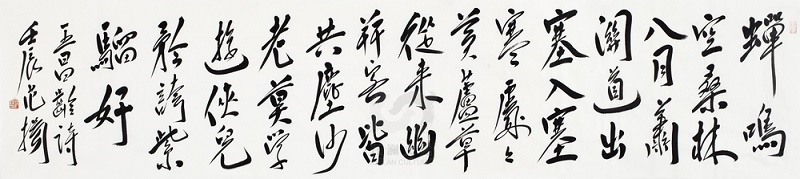 蟬鳴
空桑林
八月蕭
關道出
塞入塞
寒處々
黄蘆草
從来幽
并客皆
共塵沙
老莫学
遊俠兒
矜誇紫
騮好
王昌齡詩
壬辰范